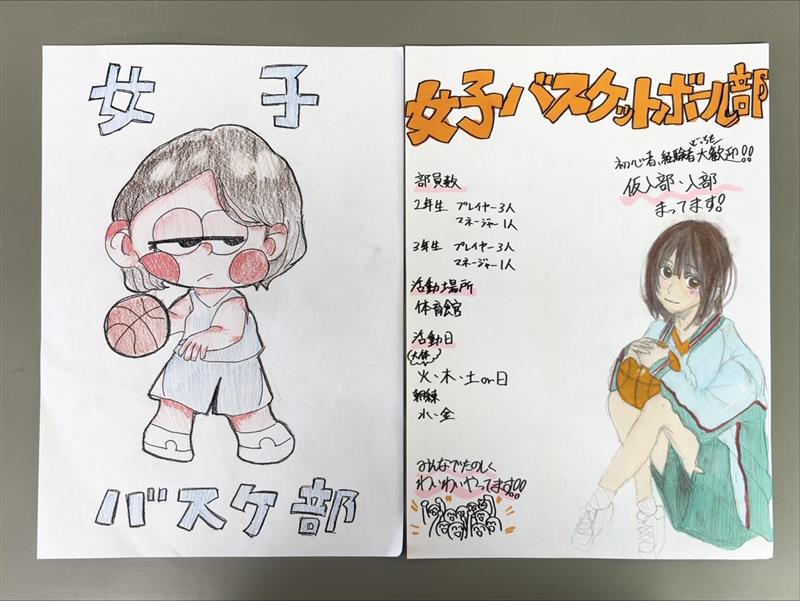 女子
バスケ部
女子バスケットボール部
初心者、経験者どっちも大歓迎!!
仮入部・入部
まってます!
部員数
2年生 プレイヤー3人
マネージャー1人
3年生 プレイヤー3人
マネージャー1人
活動場所
体育館
活動日
(大体)
火・木・土or日
朝練
水・金
みんなでたのしく
わいわいやってます!!